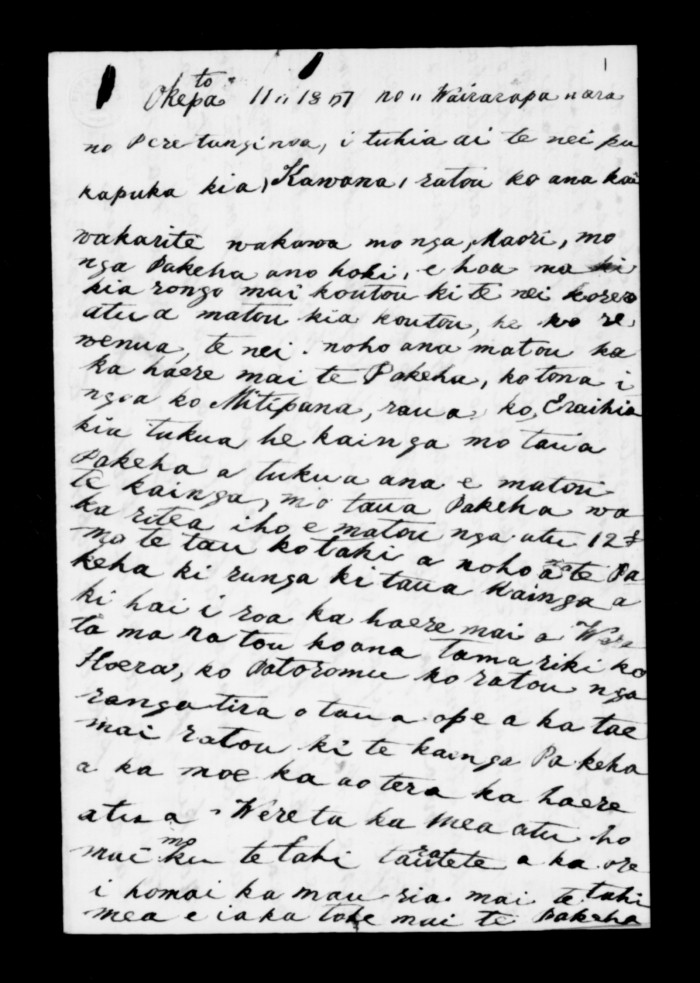 1
Oketopa 11 1857 no Wairarapa nara
no Pere tunginoa, i tuhia ai te nei pu
kapuka kia, Kawana, ratou ko ana kai
wakarite wakawa mo nga, Maori, mo
nga Pakeha ano hoki, e hoa ma
kia rongo mai koutou ki te nei korero
atu a matou kia koutou, he
wenua, te nei. noho ana matou ka
ka haere mai te Pakeha, ko tona i
ngoa ko Mitipana, raua ko, Eraihia
kia tukua he kainga mo taua
Pakeha a tukua ana e matou
te kainga, mo taua Pakeha wa
ka ritea iho e matou nga utu 12£
mo te tau kotahi a noho ana te Pa
keha ki runga ki taua Kainga a
ki hai i roa ka haere mai a Were
ta ma ra tou ko ana tama riki ko
Hoera, ko Patoromu ko ratou nga
ranga tira o taua ope a ka tae
mai ratou ki te kainga Pakeha
a ka moe ka ao te ra ka haere
atu a Wereta ka mea atu ho
mai mo ku te tahi tautete a ka ore
i homai ka mau ria mai te tahi
mea e ia ka tohe mai te Pakeha